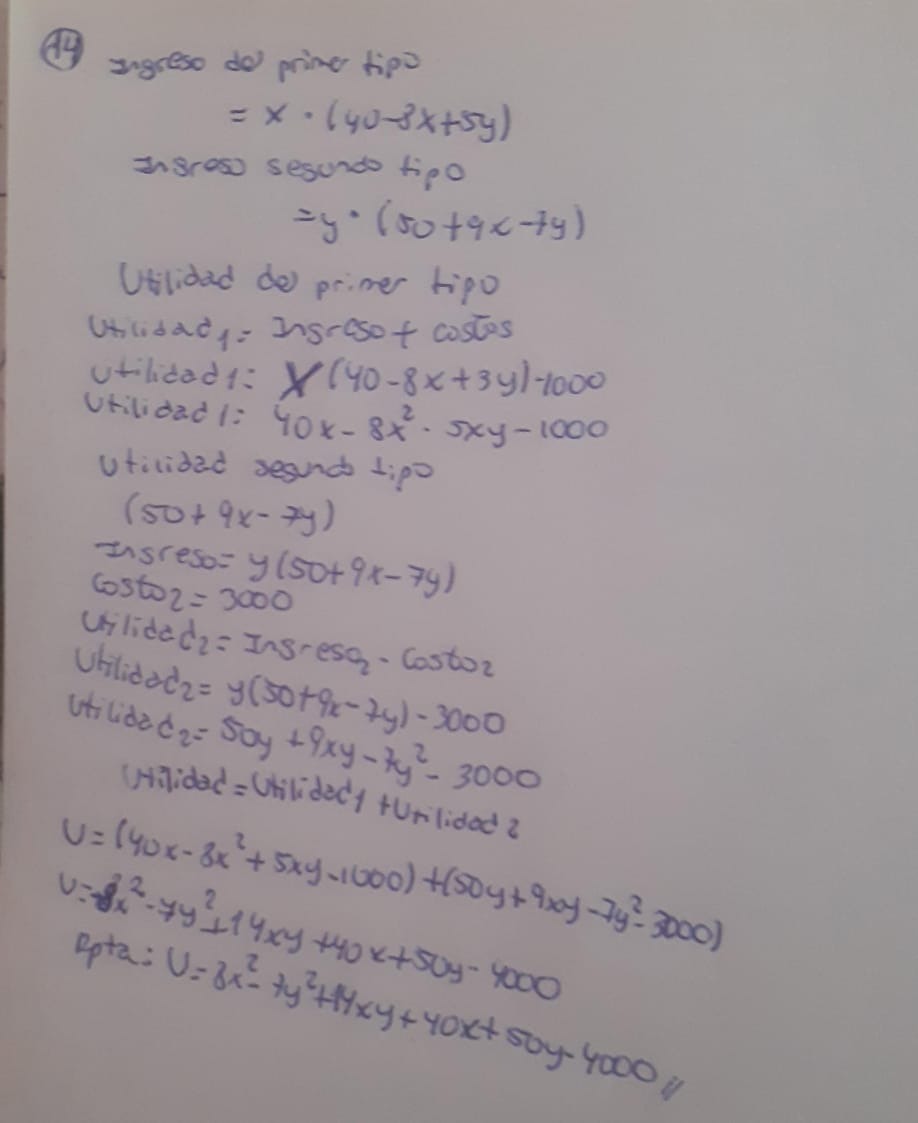 14
Ingreso del primer tipo
= x · (40-8x+5y)
Ingreso segundo tipo
= y · (50+9x-7y)
Utilidad del primer tipo
Utilidad1 = Ingreso + costos
Utilidad 1: X(40-8x+3y)-1000
Utilidad 1: 40x-8x²· 5xy-1000
Utilidad segundo tipo
(50+9x-7y)
Ingreso= y(50+9x-7y)
Costo2 = 3000
Utilidad2= Ingreso2 - Costo2
Utilidad2= y(50+9x-7y)-3000
Utilidad2= 50y +9xy-7y²- 3000
Utilidad = Utilidad1 + Utilidad 2
U= (40x-8x²+5xy-1000)+(50y+9xy-7y²-3000)
U=-8x²-7y²+14xy+40x+50y-4000
Rpta: U=8x²-7y²+14xy+40x+50y-4000 //